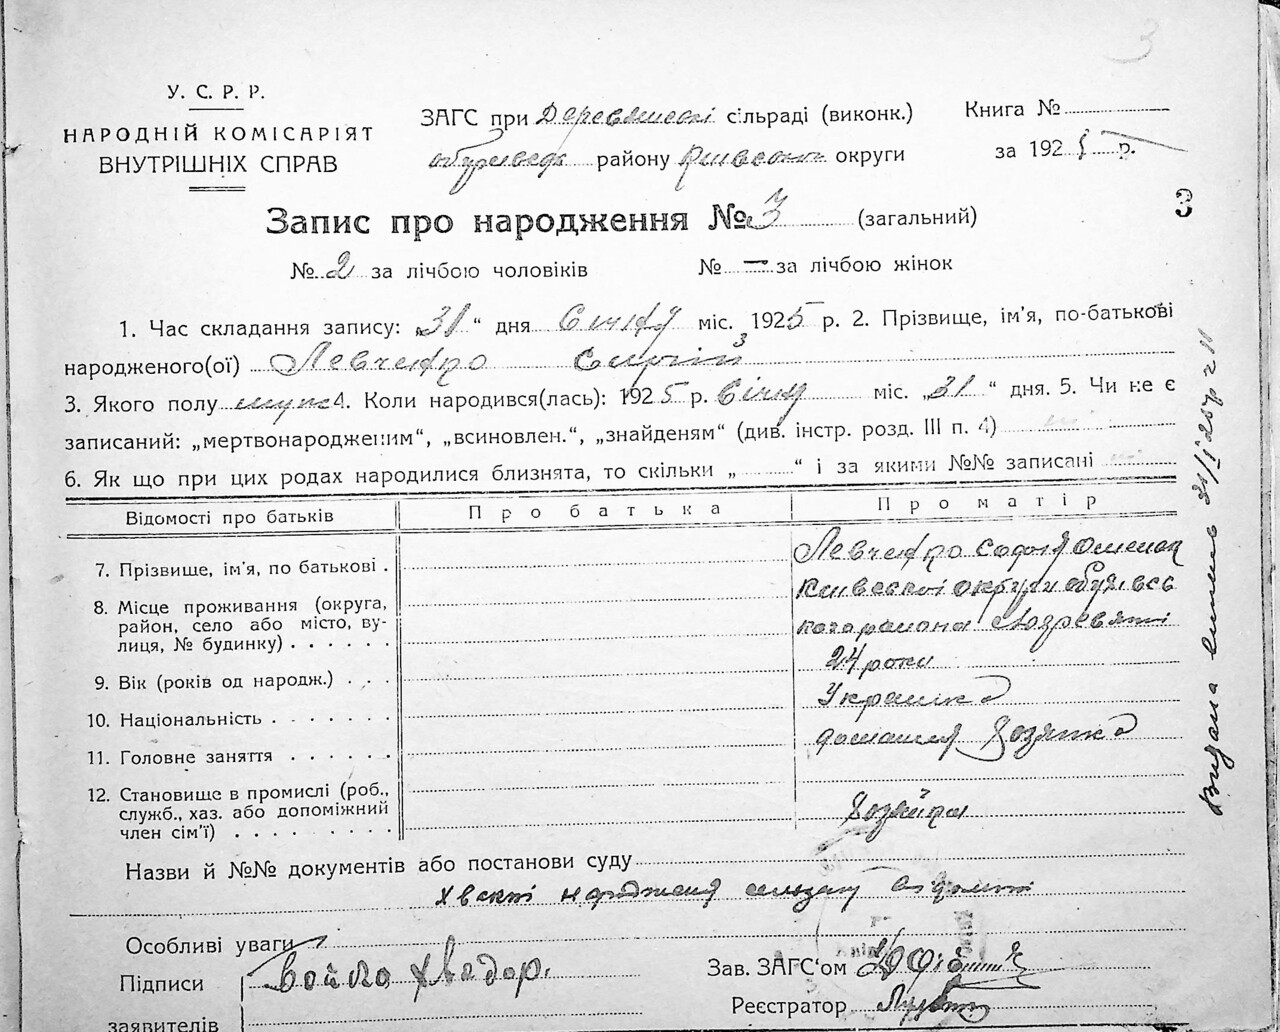 3
У. С. Р. Р.
НАРОДНІЙ КОМІСАРІЯТ
ВНУТРІШНІХ СПРАВ
ЗАГС при сільраді (виконк.)
району округи
Книга №
за 1925 р.
3
Запис про народження № 3 (загальний)
№ 2 за лічбою чоловіків № — за лічбою жінок
1. Час складання запису: „31“ дня Січня міс. 1925 р. 2. Прізвище, ім'я, по-батькові
народженого(ої) Левченко Сергій
3. Якого полу муж 4. Коли народився(лась): 1925 р. Січня міс. „31“ дня. 5. Чи не є
записаний: „мертвонародженим“, „всиновлен.“, „знайденям“ (див. інстр. розд. III п. 4) ні
6. Як що при цих родах народилися близнята, то скільки „ “ і за якими №№ записані ні
Відомості про батьків Про батька Про матір
7. Прізвище, ім'я, по батькові . Левченко Софія
8. Місце проживання (округа, район, село або місто, вулиця, № будинку) . . . . . . Київської округи
кого района
9. Вік (років од народж.) . . . 24 роки
10. Національність . . . . . . . Українка
11. Головне заняття . . . . . . домашня хозяйка
12. Становище в промислі (роб., служб., хаз. або допоміжний член сім'ї) . . . . . . . . . хозяйка
Назви й №№ документів або постанови суду
народження
Особливі уваги
Підписи
заявителів
Войло Хведор.
Зав. ЗАГС'ом
Реєстратор
Видана 31/I 25 р.